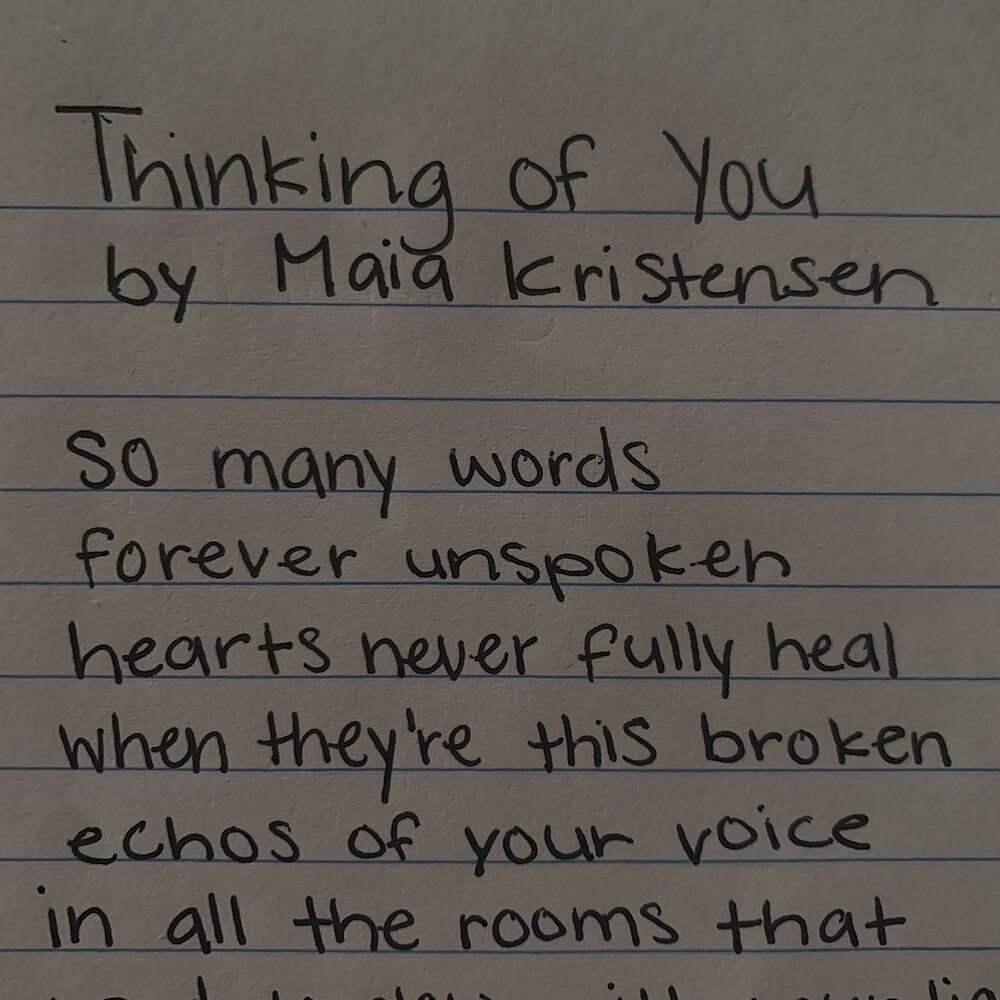 Thinking of You
by Maia Kristensen
So many words
forever unspoken
hearts never fully heal
when they're this broken
echos of your voice
in all the rooms that